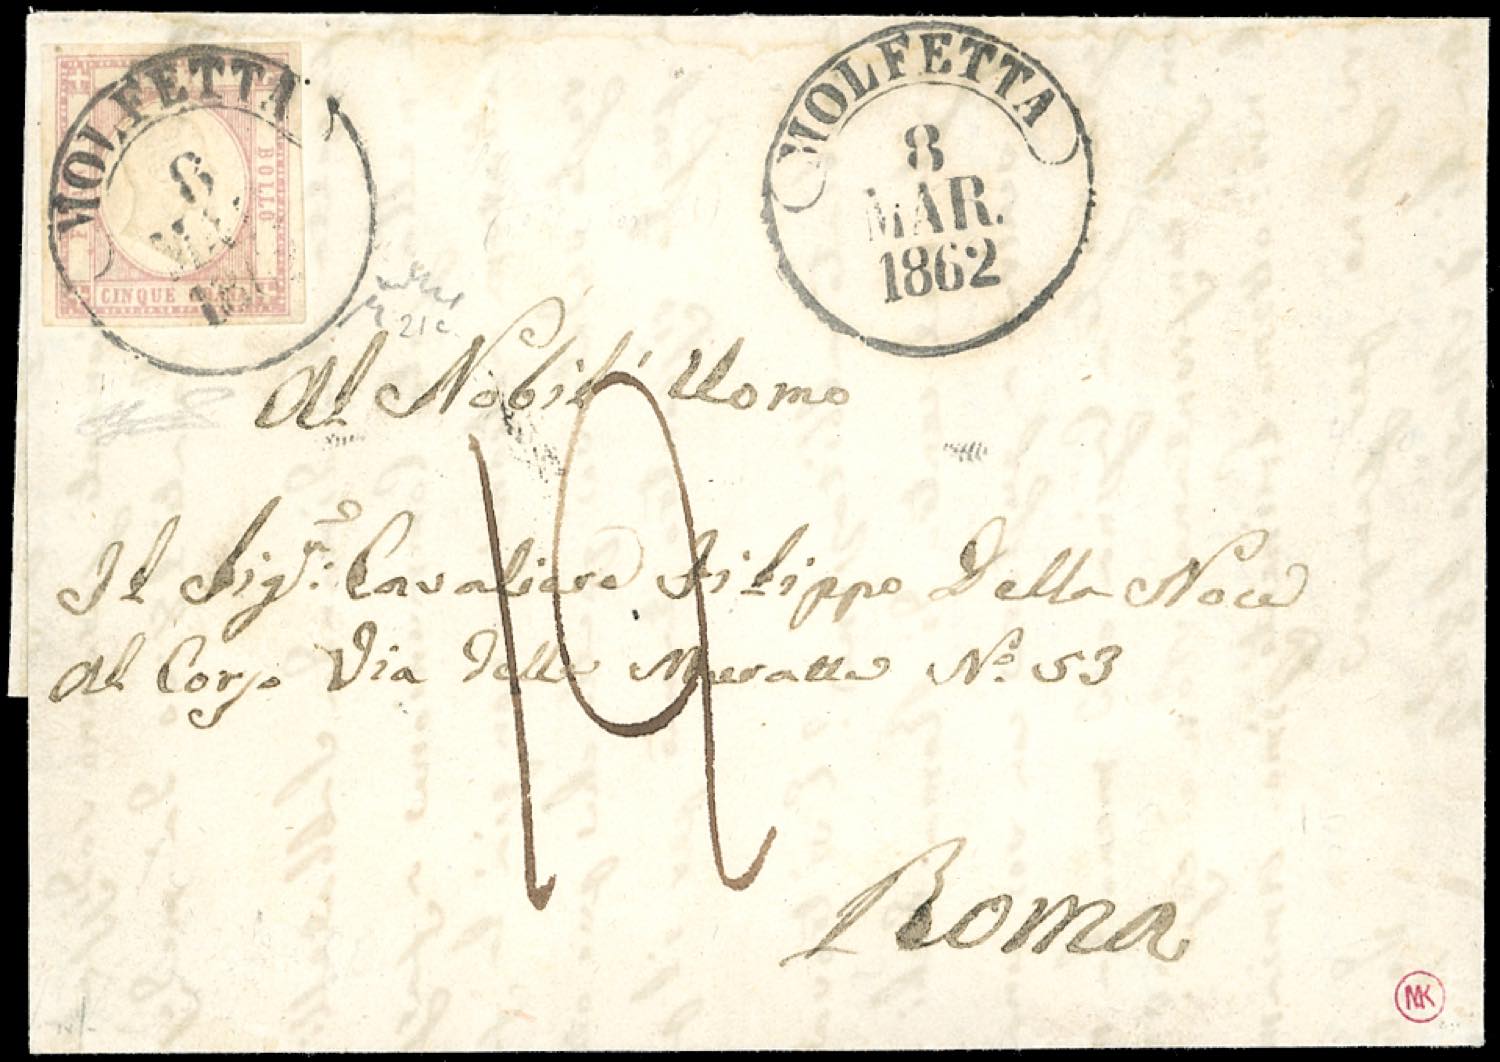 MOLFETTA
8
BOLLO
CINQUE
MOLFETTA
8
MAR.
1862
21c.
Al Nobil' Uomo
19
Il Sigr.e Cavaliere Filippo Della Noce
Al Corso Via delle Muratte No. 53
Roma
MK